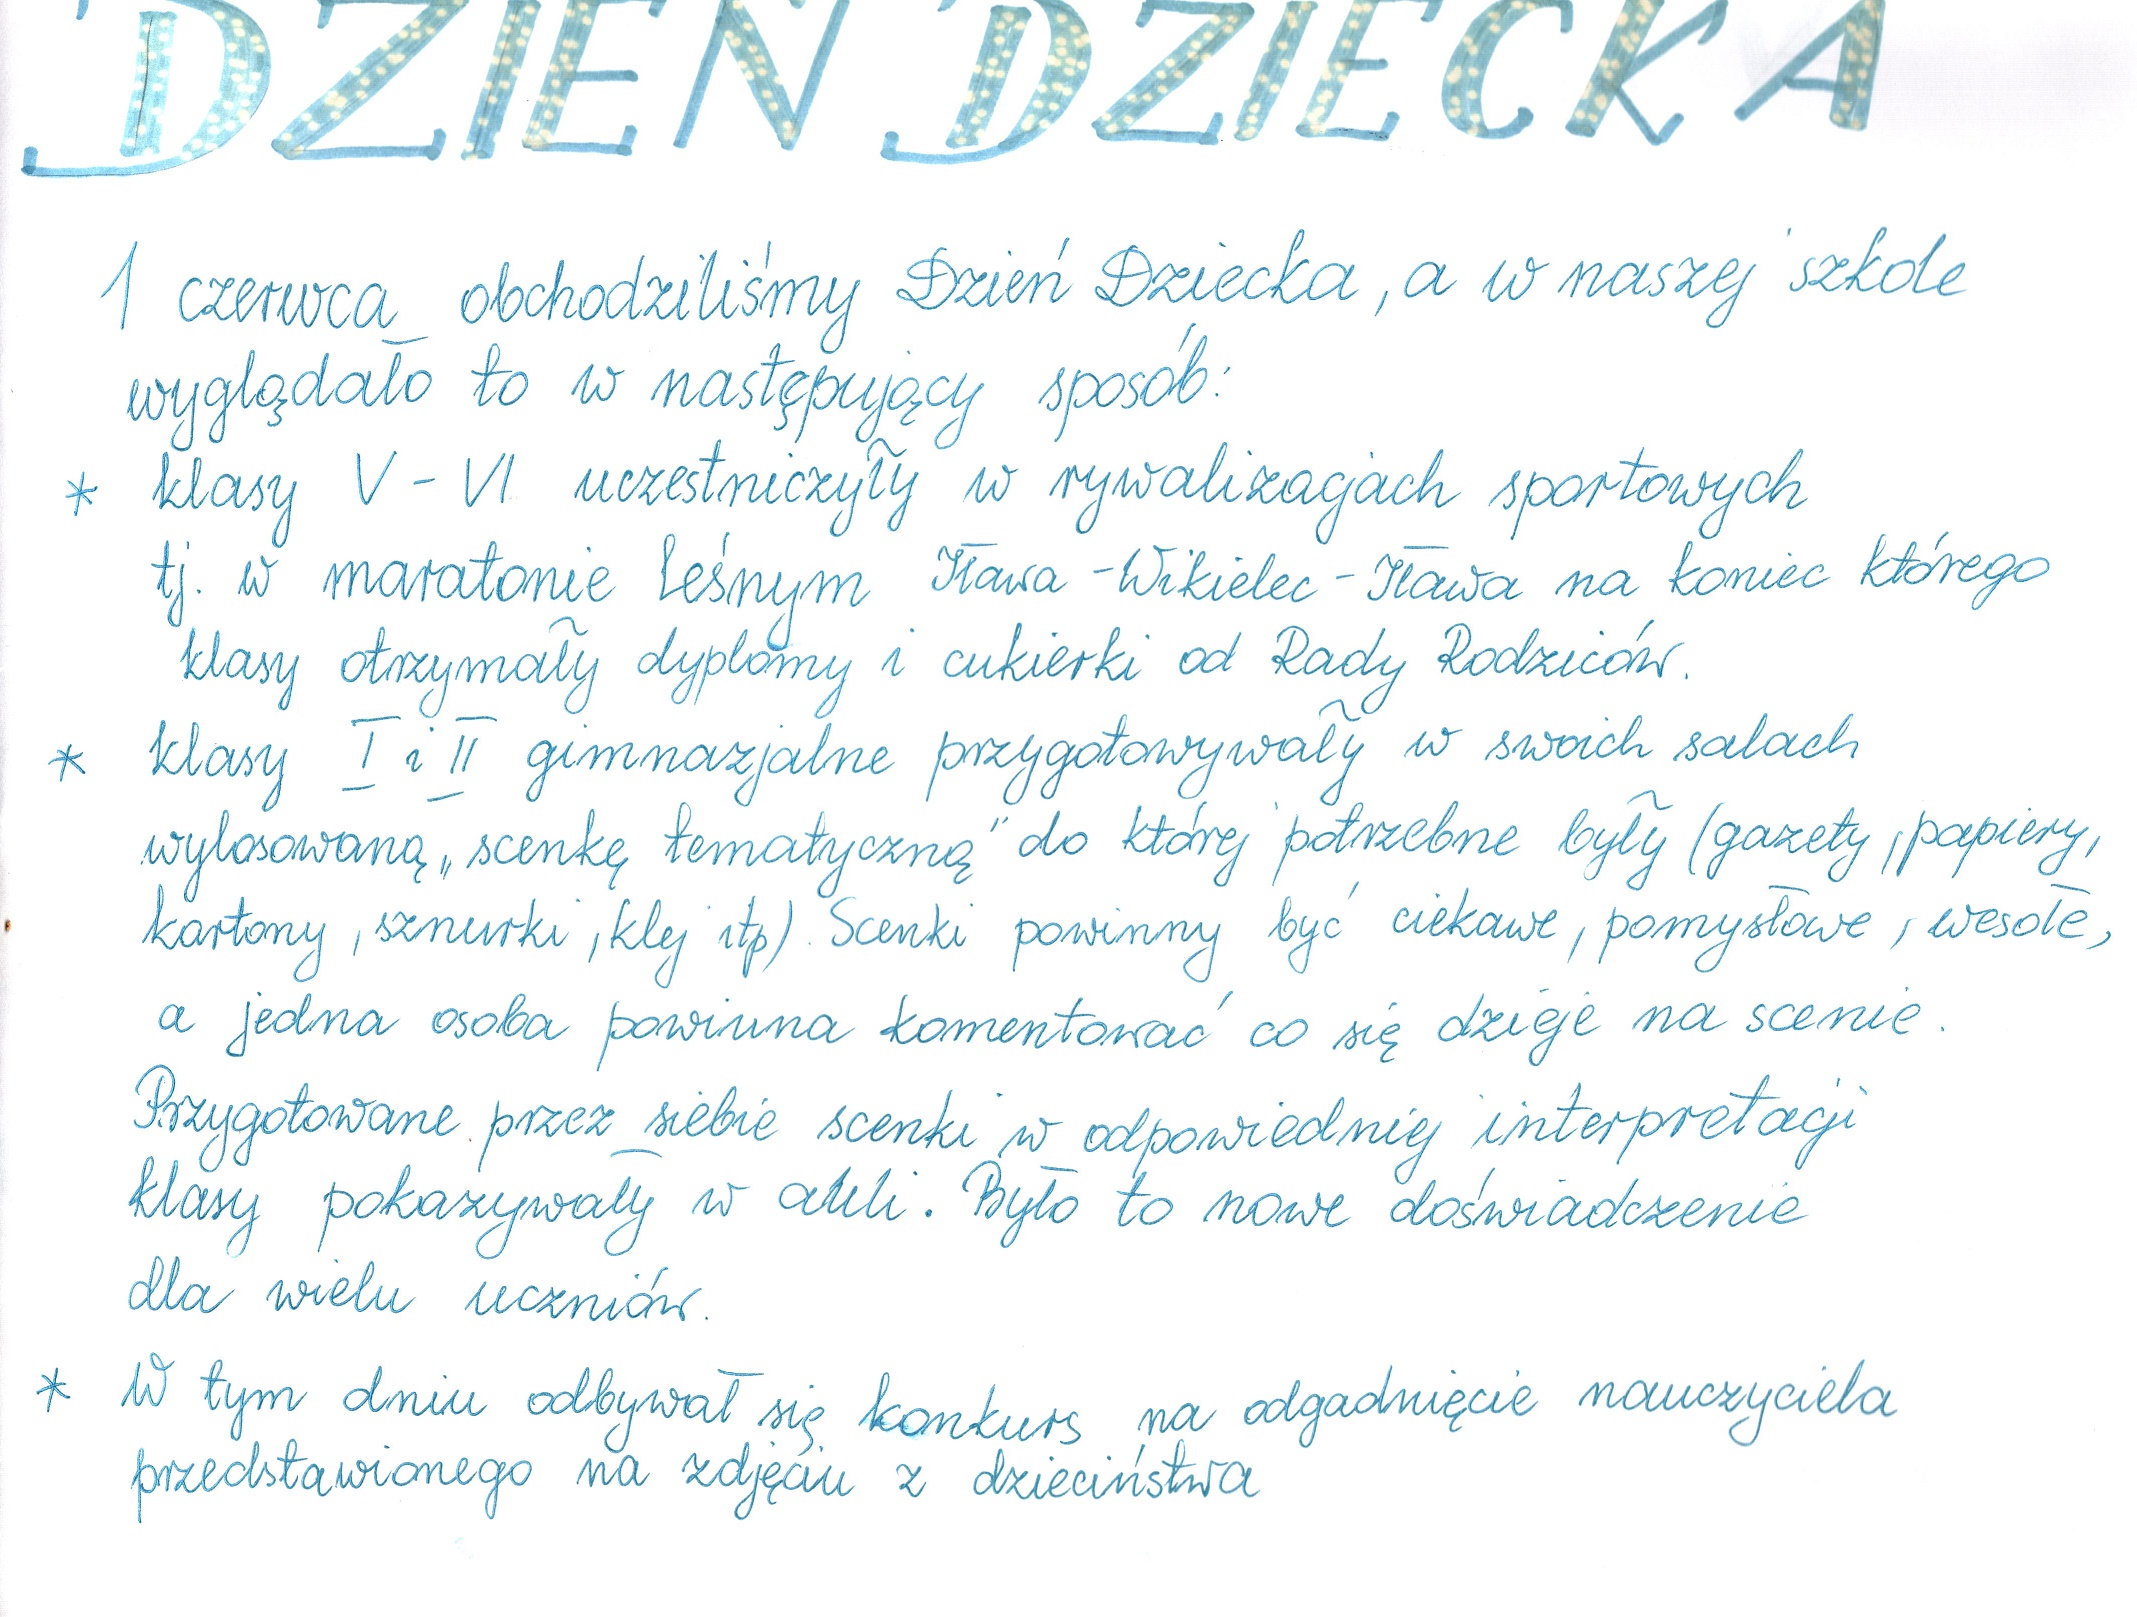 DZIEŃ DZIECKA
1 czerwca obchodziliśmy Dzień Dziecka, a w naszej szkole
wyglądało to w następujący sposób:
* klasy V - VI uczestniczyły w rywalizacjach sportowych
tj. w maratonie leśnym Iława - Wikielec - Iława na koniec którego
klasy otrzymały dyplomy i cukierki od Rady Rodziców.
* klasy I i II gimnazjalne przygotowywały w swoich salach
wylosowaną „scenkę tematyczną" do której potrzebne były (gazety, papiery,
kartony, sznurki, klej itp). Scenki powinny być ciekawe, pomysłowe, wesołe,
a jedna osoba powinna komentować co się dzieje na scenie.
Przygotowane przez siebie scenki w odpowiedniej interpretacji
klasy pokazywały w auli. Było to nowe doświadczenie
dla wielu uczniów.
* W tym dniu odbywał się konkurs na odgadnięcie nauczyciela
przedstawionego na zdjęciu z dzieciństwa